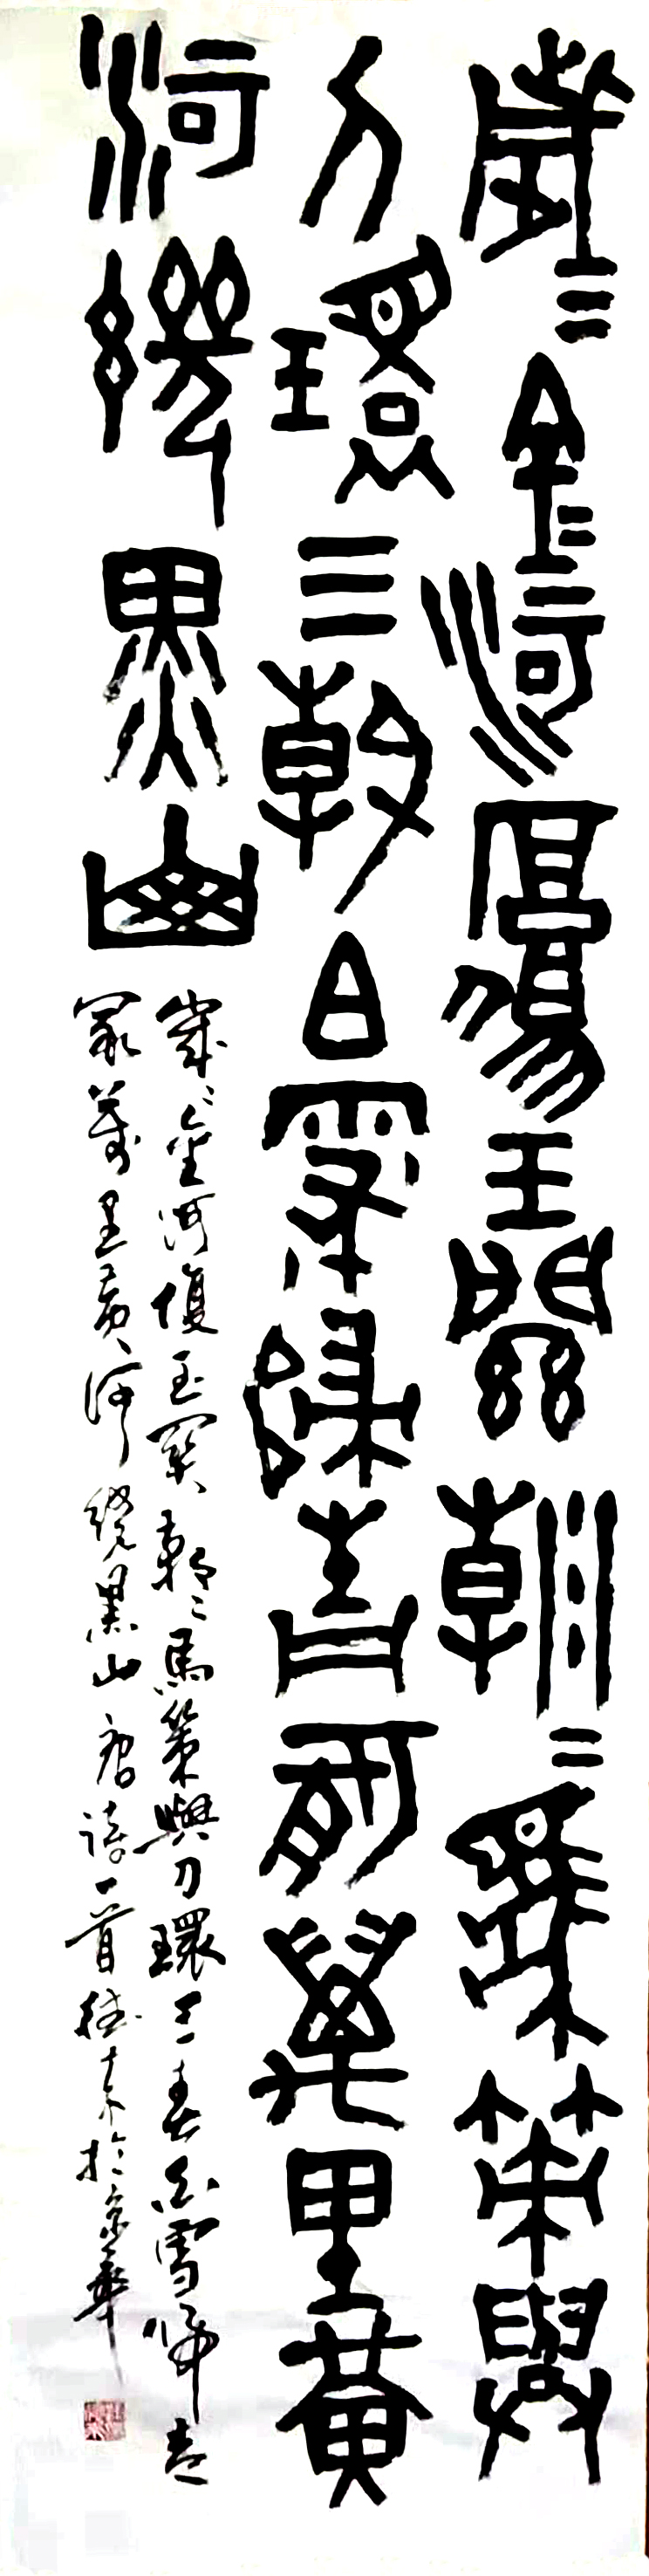 歲〻金河復玉關朝〻馬策與
刀環三春白雪歸青冢萬里黃
河繞黑山
歲〻金河復玉關朝〻馬策與刀環三春白雪歸青
冢萬里黃河繞黑山唐詩一首於京華